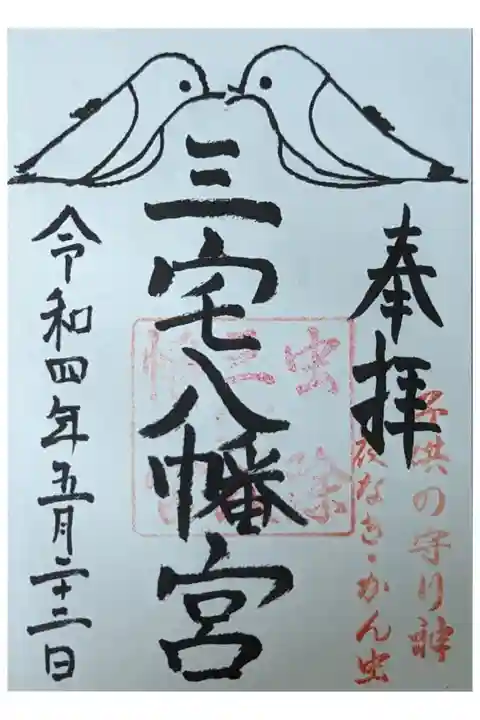 奉拝
子供の守り神
夜なき・かん虫
三宅八幡宮
令和四年五月二十三日